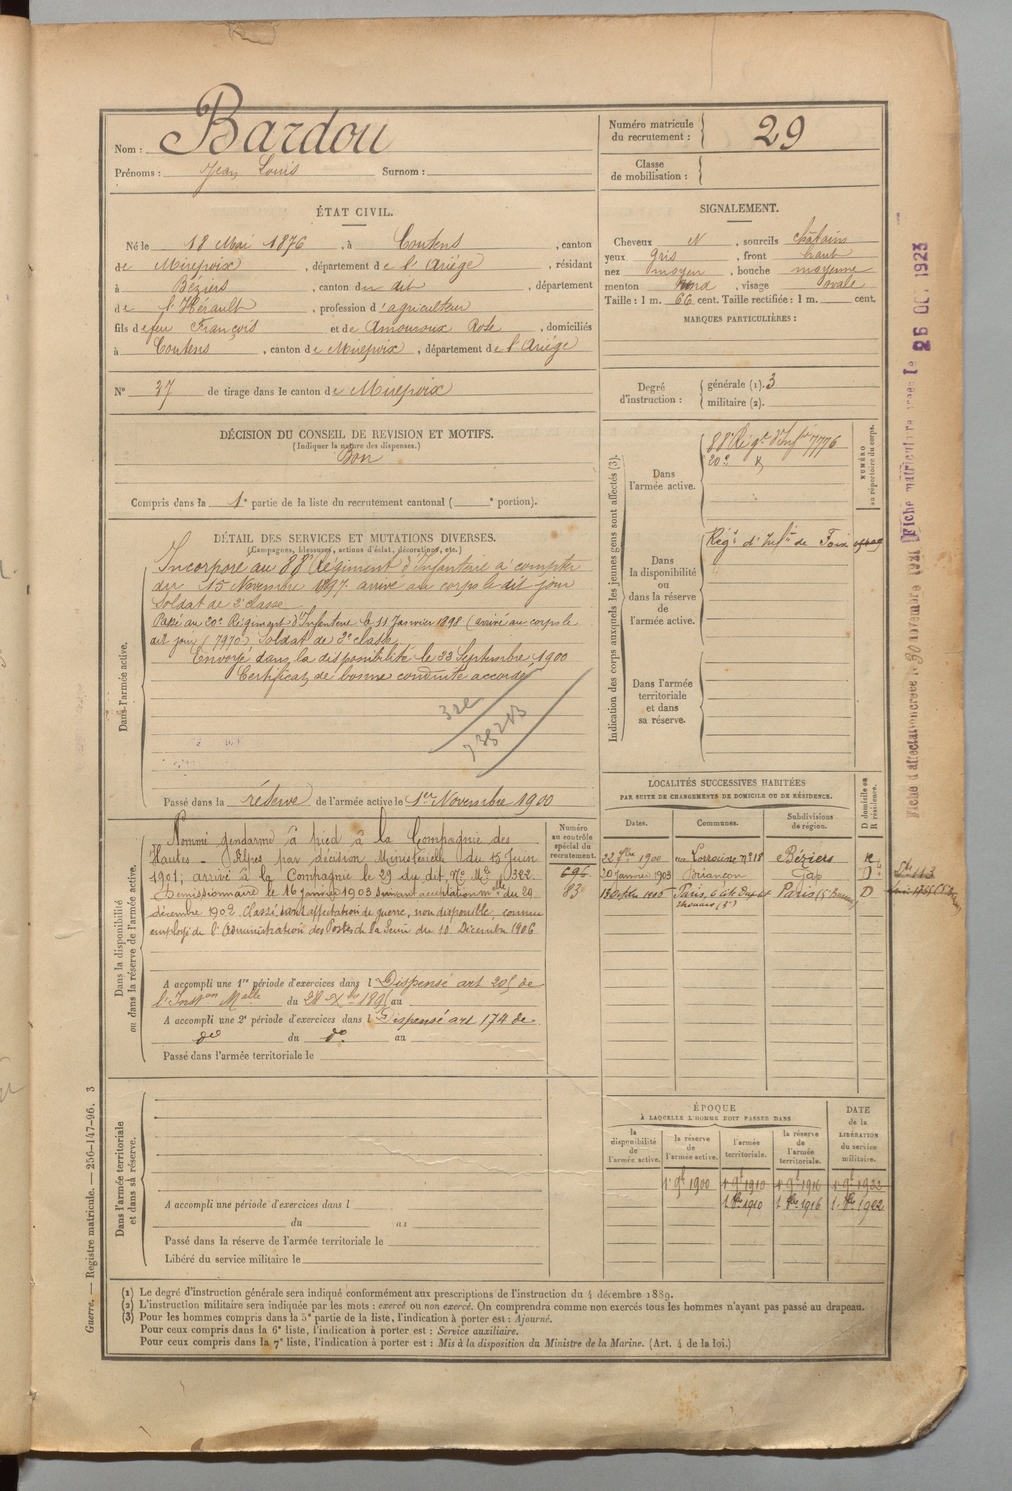 Nom : Bardou
Prénoms : Jean Louis Surnom :
Numéro matricule du recrutement : 29
Classe de mobilisation :
ÉTAT CIVIL.
Né le 18 Mai 1876, à Coutens, canton
de Mirepoix, département de l'Ariége, résidant
à Béziers, canton du dit, département
de l'Hérault, profession d'agriculteur
fils de feu François et de Amouroux Rose, domiciliés
à Coutens, canton de Mirepoix, département de l'Ariége
N° 37 de tirage dans le canton de Mirepoix
SIGNALEMENT.
Cheveux N, sourcils châtains
yeux gris, front haut
nez moyen, bouche moyenne
menton rond, visage ovale
Taille : 1 m. 66 cent. Taille rectifiée : 1 m. cent.
MARQUES PARTICULIÈRES :
Degré d'instruction : générale (1). 3
militaire (2).
DÉCISION DU CONSEIL DE REVISION ET MOTIFS.
(Indiquer la nature des dispenses.)
Bon
Compris dans la 1e partie de la liste du recrutement cantonal ( e portion).
DÉTAIL DES SERVICES ET MUTATIONS DIVERSES.
(Campagnes, blessures, actions d'éclat, décorations, etc.)
Dans l'armée active.
Incorporé au 88e Régiment d'Infanterie à compter
du 15 Novembre 1897 arrivé au corps le dit jour
Soldat de 2e classe
Passé au 20e Régiment d'Infanterie le 11 Janvier 1898 (arrivé au corps le
dit jour (7970) Soldat de 2e classe
Envoyé dans la disponibilité le 23 Septembre 1900
Certificat de bonne conduite accordé
Passé dans la réserve de l'armée active le 1er Novembre 1900
Indication des corps auxquels les jeunes gens sont affectés (3).
NUMÉRO au répertoire du corps.
Dans l'armée active.
88e Régt d'Infie 7776
20e
Dans la disponibilité ou dans la réserve de l'armée active.
Régt d'Infie de Foix
Dans l'armée territoriale et dans sa réserve.
LOCALITÉS SUCCESSIVES HABITÉES
PAR SUITE DE CHANGEMENTS DE DOMICILE OU DE RÉSIDENCE.
D domicile ou R résidence.
Dates. Communes. Subdivisions de région.
22 7bre 1900 rue Lorraine n° 18 Béziers R
20 Janvier 1903 Briançon Gap D
1905 Paris, Paris D
Dans la disponibilité ou dans la réserve de l'armée active.
Numéro au contrôle spécial du recrutement.
696
83
Nommé gendarme à pied à la Compagnie des
Hautes-Alpes par décision Ministérielle du 15 Juin
1901, arrivé à la Compagnie le 29 du dit, No Mle 1322.
Démissionnaire le 16 Janvier 1903 suivant acceptation mlle du 29
décembre 1902 Classé sans affectation de guerre, non disponible, comme
employé de l'Administration des Postes de la Seine du 10 Décembre 1906
A accompli une 1re période d'exercices dans l Dispensé art 205 de
l'Inston Mlle du 28 Xbre 1895 au
A accompli une 2e période d'exercices dans l Dispensé art 174 de
do du do au
Passé dans l'armée territoriale le
Dans l'armée territoriale et dans sa réserve.
A accompli une période d'exercices dans l
du au
Passé dans la réserve de l'armée territoriale le
Libéré du service militaire le
ÉPOQUE
À LAQUELLE L'HOMME DOIT PASSER DANS
DATE de la LIBÉRATION du service militaire.
la disponibilité de l'armée active. la réserve de l'armée active. l'armée territoriale. la réserve de l'armée territoriale.
1er 9bre 1900 1er 9bre 1910 1er 9bre 1916 1er 9bre 1922
1910 1916 1922
(1) Le degré d'instruction générale sera indiqué conformément aux prescriptions de l'instruction du 4 décembre 1889.
(2) L'instruction militaire sera indiquée par les mots : exercé ou non exercé. On comprendra comme non exercés tous les hommes n'ayant pas passé au drapeau.
(3) Pour les hommes compris dans la 5e partie de la liste, l'indication à porter est : Ajourné.
Pour ceux compris dans la 6e liste, l'indication à porter est : Service auxiliaire.
Pour ceux compris dans la 7e liste, l'indication à porter est : Mis à la disposition du Ministre de la Marine. (Art. 4 de la loi.)
Guerre. — Registre matricule. — 256-147-96. 3
Fiche matricule le 26 OCT 1923